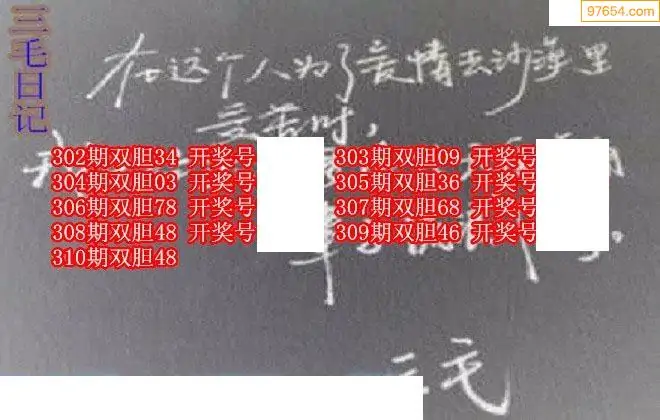 97654.com
三毛日记
在这个人为了爱情去沙漠里
受苦时，
302期双胆34 开奖号
303期双胆09 开奖号
304期双胆03 开奖号
305期双胆36 开奖号
306期双胆78 开奖号
307期双胆68 开奖号
308期双胆48 开奖号
309期双胆46 开奖号
310期双胆48
三毛